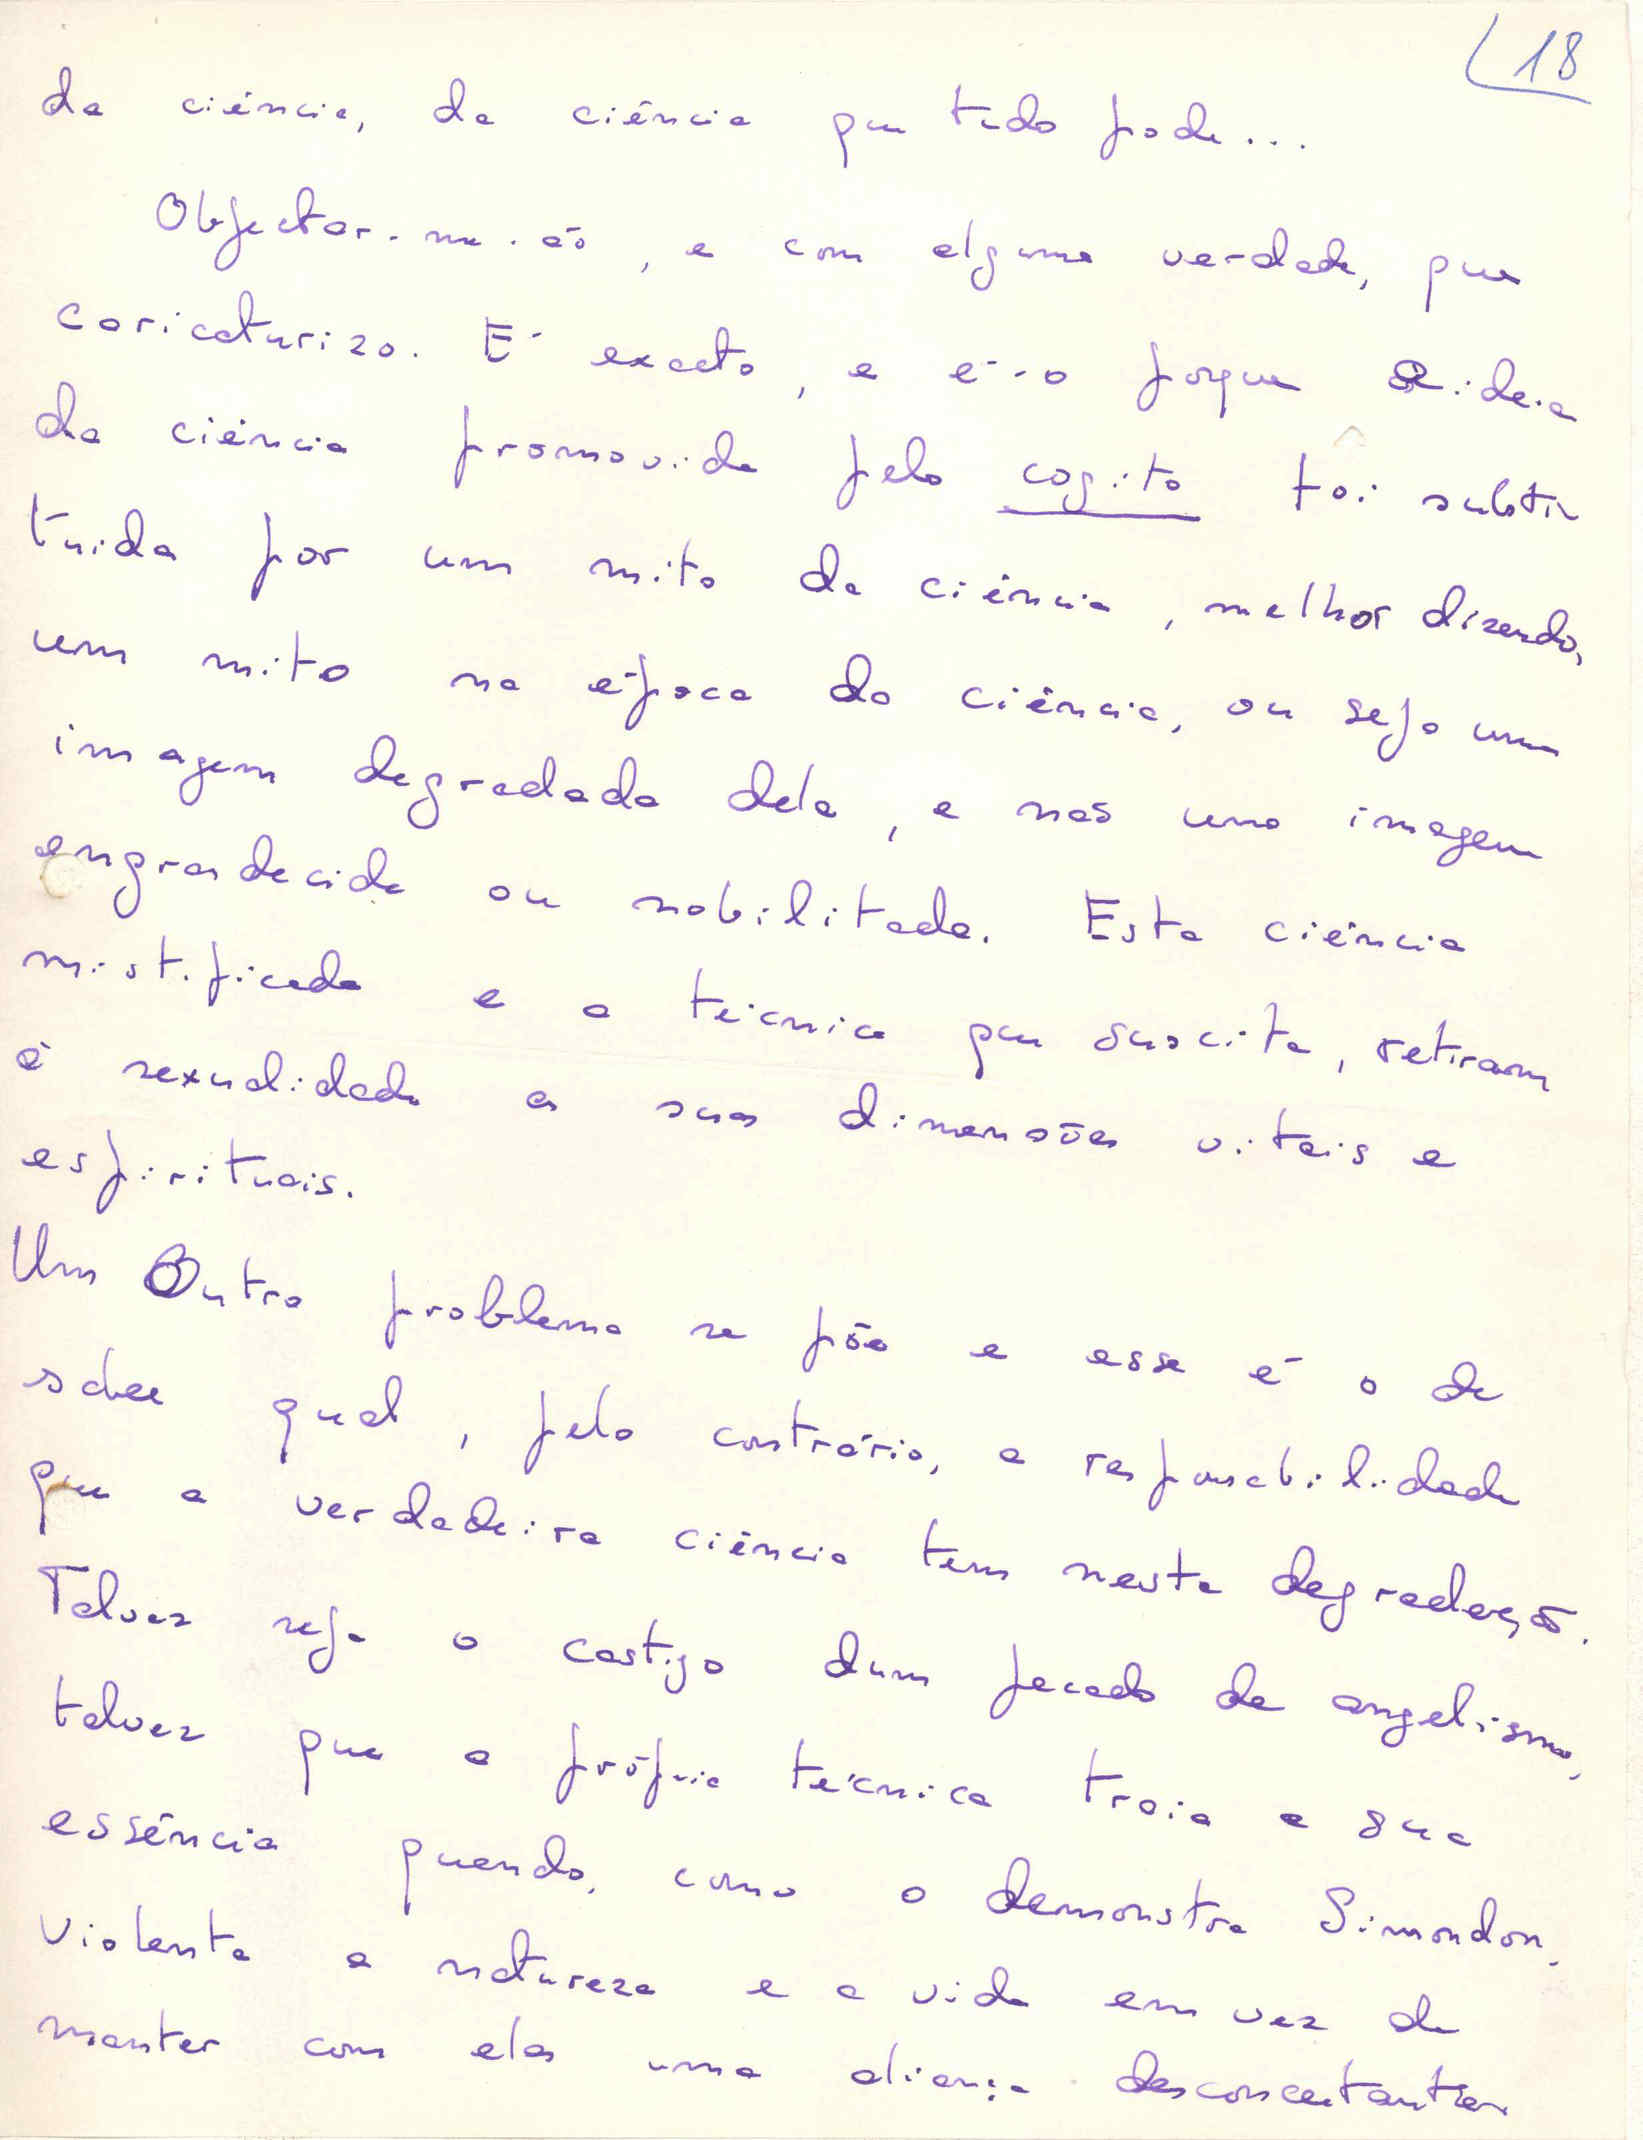 18
da ciência, da ciência que tudo pode...
Objectar-me-ão, e com alguma verdade, que
caricaturizo. É exacto, e é-o porque a ideia
da ciência promovida pelo cogito foi substi
tuida por um mito da ciência, melhor dizendo,
um mito na época da ciência, ou seja uma
imagem degradada dela, e não uma imagem
engrandecida ou nobilitada. Esta ciência
mistificada e a técnica que suscita, retiram
à sexualidade as suas dimensões vitais e
espirituais.
Um Outro problema se põe e esse é o de
saber qual, pelo contrário, a responsabilidade
que a verdadeira ciência tem nesta degradação.
Talvez seja o castigo dum pecado de angelismo,
talvez que a própria técnica traia a sua
essência quando, como o demonstra Simondon,
violenta a natureza e a vida em vez de
manter com elas uma aliança